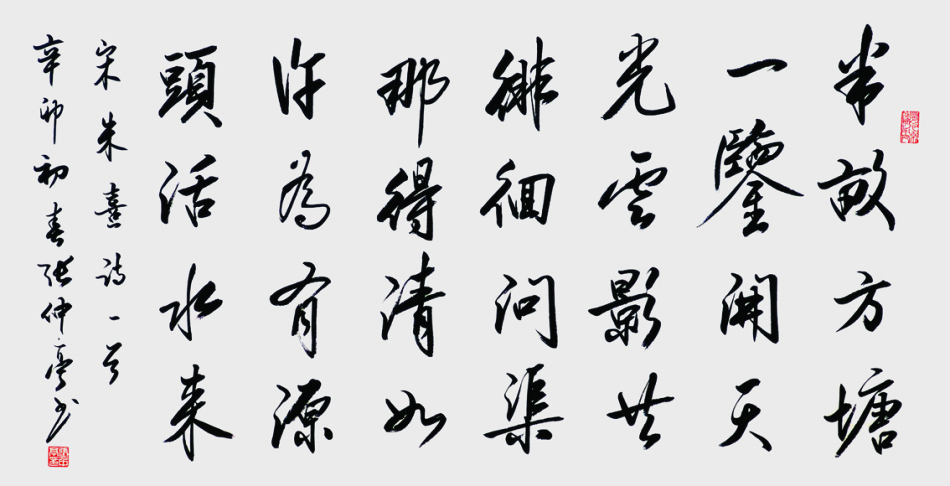 半畝方塘
一鑒開天
光雲影共
徘徊問渠
那得清如
許為有源
頭活水来
宋朱熹詩一首
辛卯初春張仲亭书